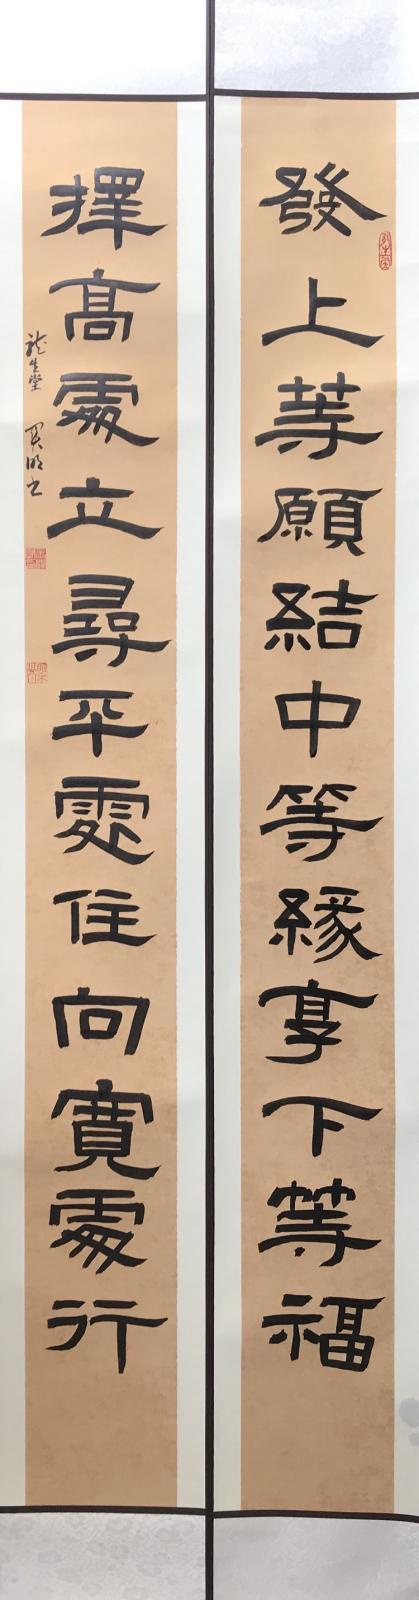 發上等願結中等緣享下等福
擇高處立尋平處住向寬處行
龍生堂 明書